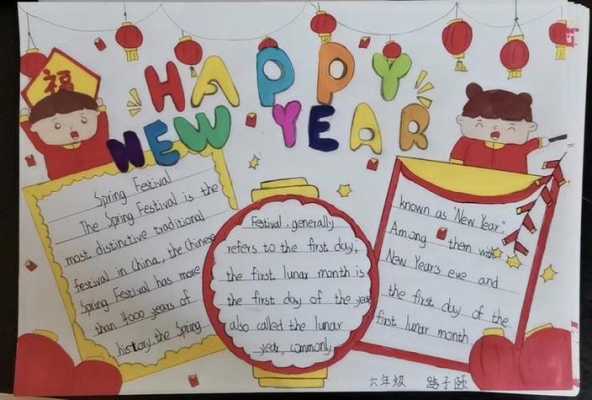 福
HAPPY
NEW YEAR
Spring Festival
The Spring Festival is the
most distinctive traditional
festival in China, the Chinese
Spring Festival has more
than 4000 years of
history. the Spring
Festival generally
refers to the first day,
the first lunar month is
the first day of the year
also called the lunar
year, commonly
known as "New Year."
Among them with
New Year's eve and
the first day of the
first lunar month
六年级